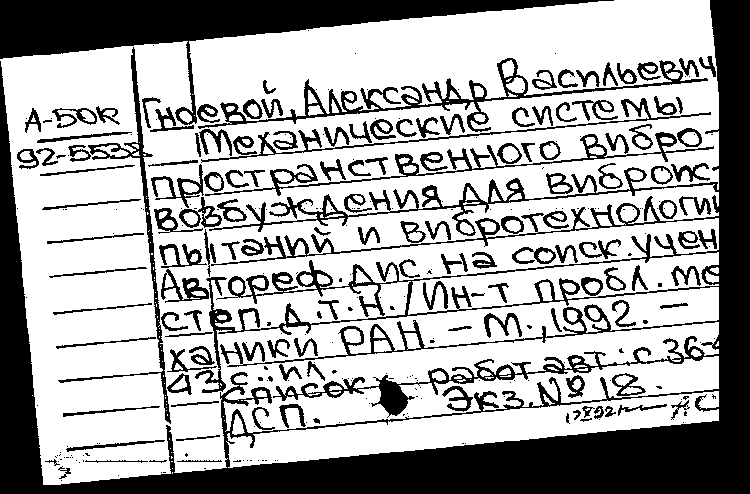 Гноевой, Александр Васильевич
А-БОК
Механические системы
92-5538
пространственного вибро-
возбуждения для вибропс-
пытаний и вибротехнологий
Автореф. дис. на соиск. учен
степ. д.т.н. /Ин-т пробл. ме
ханики РАН. – М., 1992. –
43 с.: ил.
Список работ авт.: с 36-4
ДСП. Экз. № 18.
АС